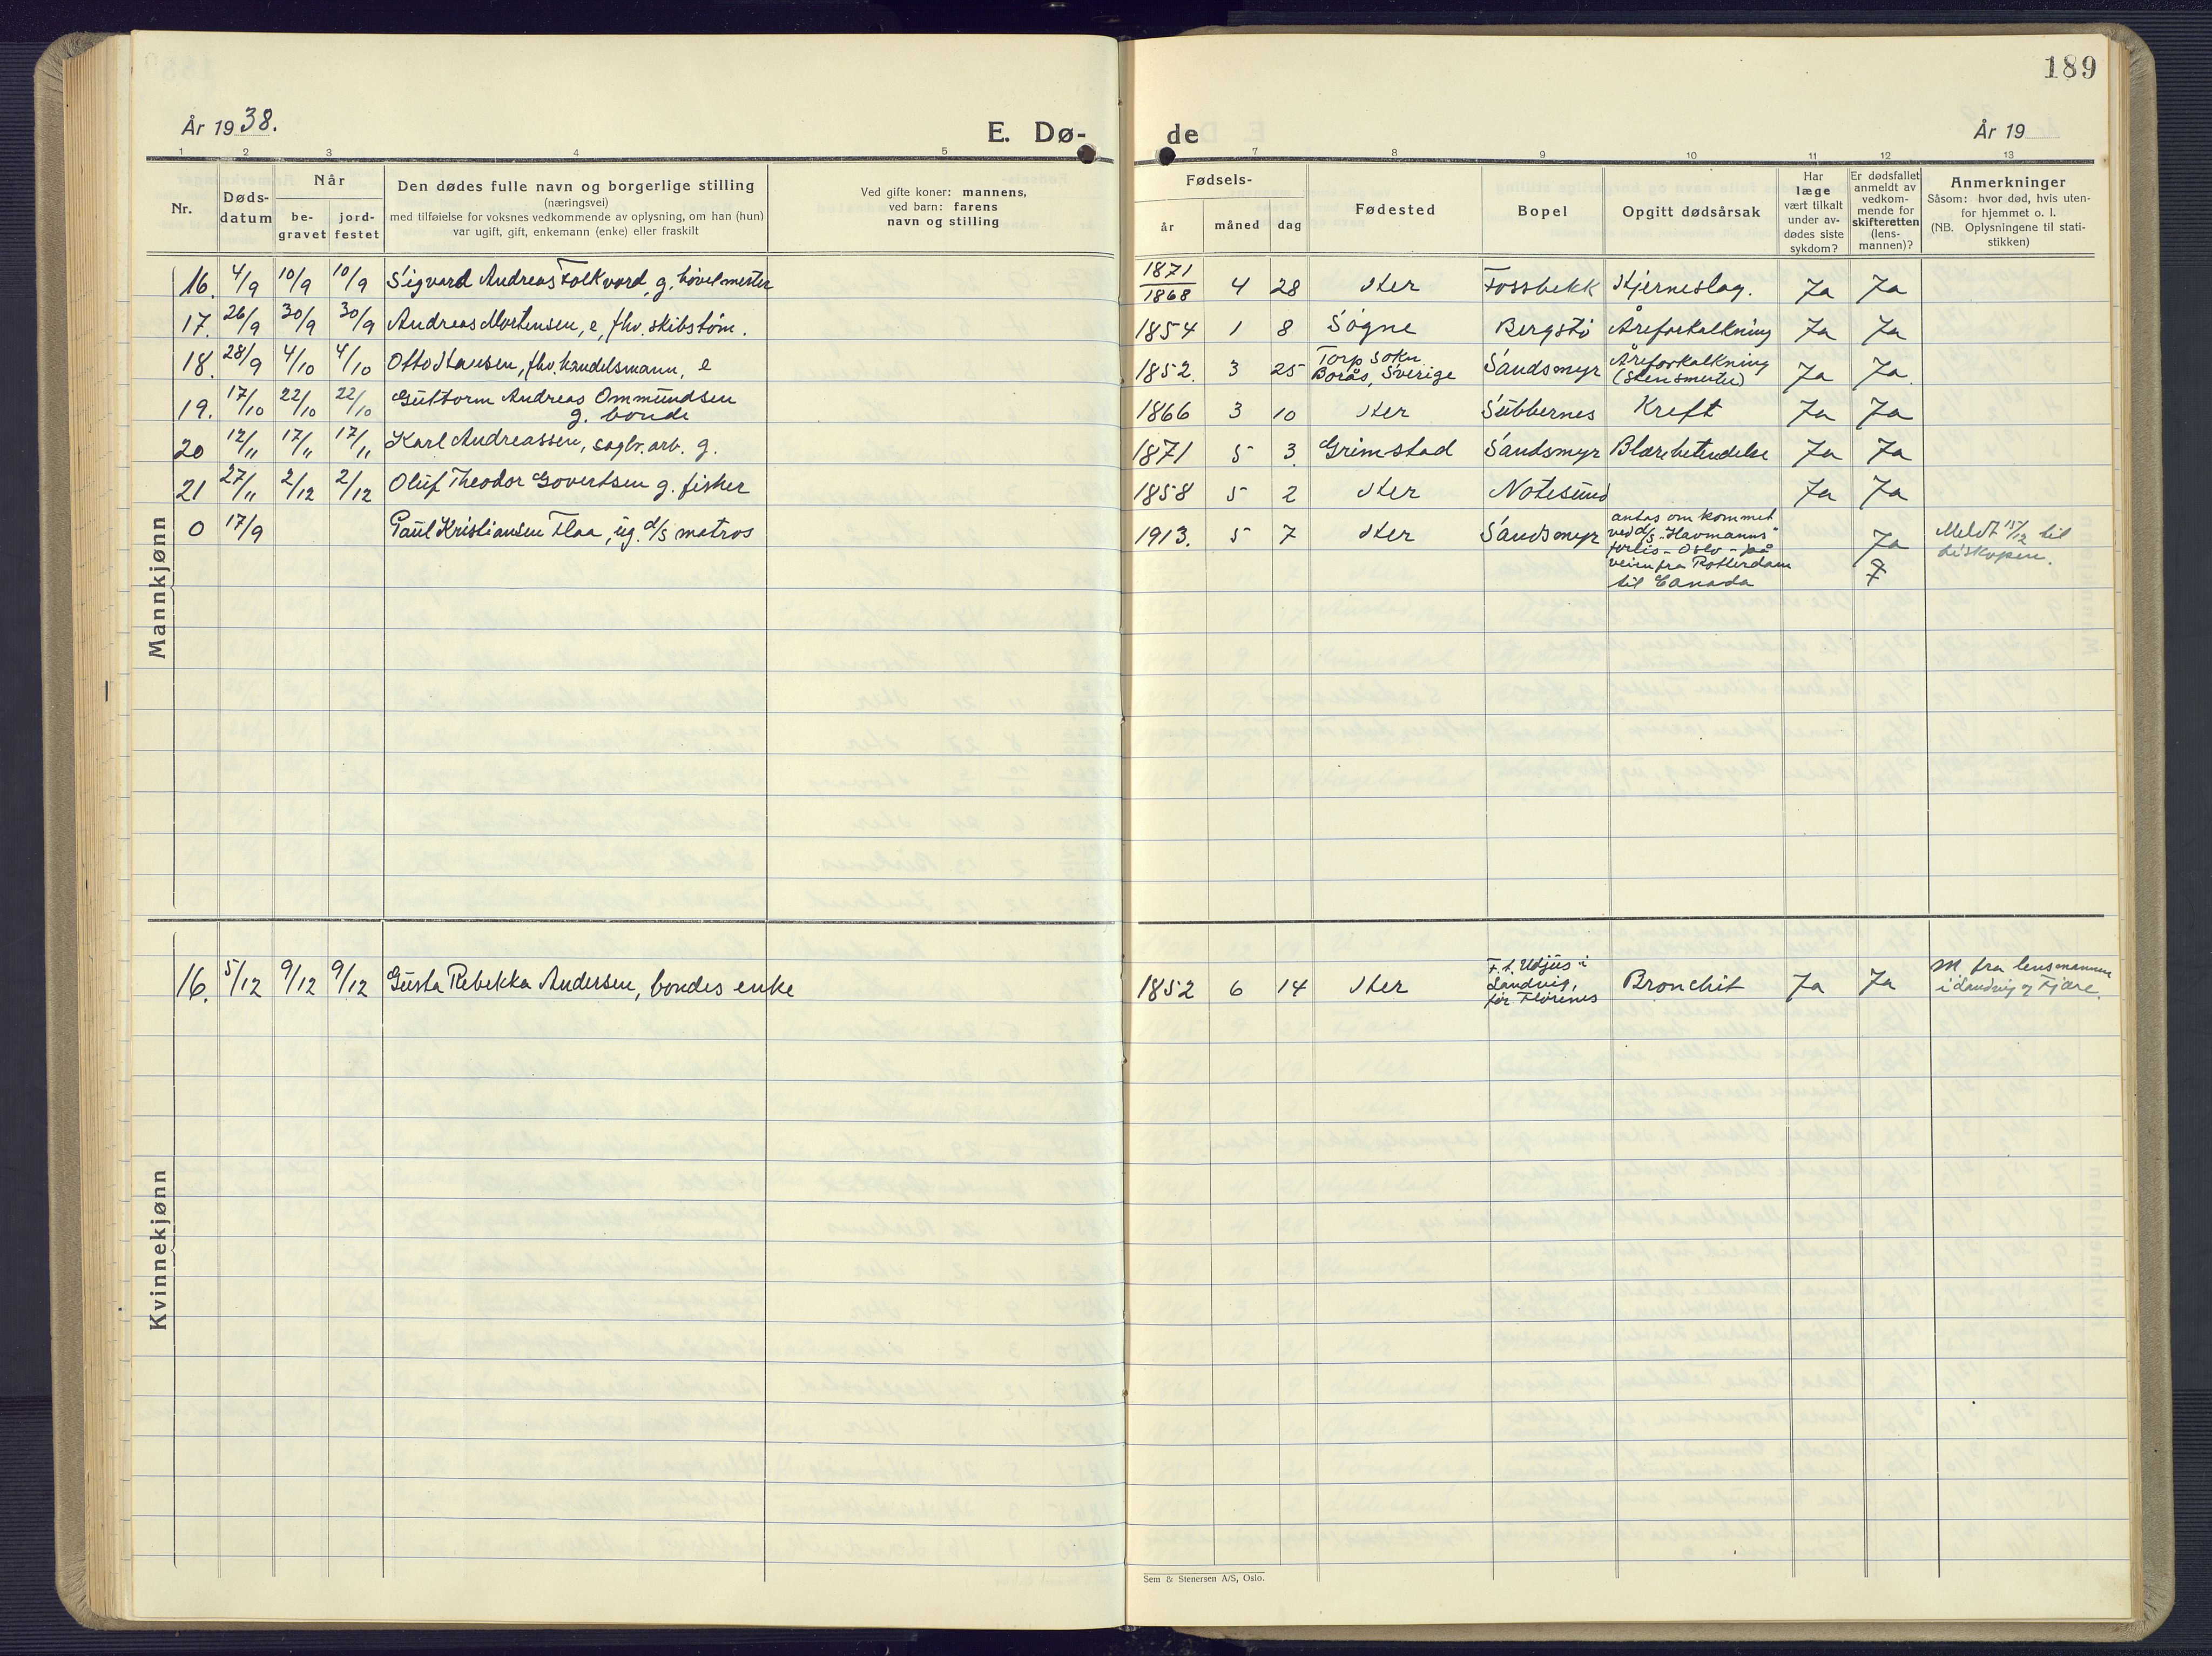 189
År 1938.
E. Dø-
de
År 19
1 2 3 4 5
7 8 9 10 11 12 13
Nr.
Døds-
datum
Når
be-
gravet
jord-
festet
Den dødes fulle navn og borgerlige stilling
(næringsvei)
med tilføielse for voksnes vedkommende av oplysning, om han (hun)
var ugift, gift, enkemann (enke) eller fraskilt
Ved gifte koner: mannens,
ved barn: farens
navn og stilling
Fødsels-
år måned dag
Fødested
Bopel
Opgitt dødsårsak
Har
læge
vært tilkalt
under av-
dødes siste
sykdom?
Er dødsfallet
anmeldt av
vedkom-
mende for
skifteretten
(lens-
mannen)?
Anmerkninger
Såsom: hvor død, hvis uten-
for hjemmet o. l.
(NB. Oplysningene til stati-
stikken)
Mannkjønn
16. 4/9 10/9 10/9 Sigvard Andreas Folkvord, g. høvelmester 1871 1868 4 28 Her Fossbekk Hjerneslag. Ja Ja
17. 26/9 30/9 30/9 Andreas Mortensen, e, fhv. skibstøm. 1854 1 8 Søgne Bergstø Åreforkalkning Ja Ja
18. 28/9 4/10 4/10 Otto Hansen, fhv. handelsmann, e 1852 3 25 Torp sokn
Borås, Sverige Sandsmyr Åreforkalkning
Ja Ja
19. 17/10 22/10 22/10 Guttorm Andreas Ommundsen
g. bonde 1866 3 10 Her Subbernes Kreft Ja Ja
20 12/11 17/11 17/11 Karl Andreassen, sagbr. arb. g. 1871 5 3. Grimstad Sandsmyr Blærebetendelse Ja Ja
21 27/11 2/12 2/12 Oluf Theodor Govertsen g. fisker 1858 5 2 Her Notesund Ja Ja
0 17/9 Paul Kristiansen Flaa, ug. d/s matros 1913. 5 7 Her Sandsmyr antas omkommet
ved d/s "Havmanns"
forlis - Oslo - på
veien fra Rotterdam
til Canada
Ja
?
Meldt 15/12 til
biskopen.
Kvinnekjønn
16. 5/12 9/12 9/12 Gusta Rebekka Andersen, bondes enke 1852 6 14 Her F. t. Udjus i
Landvig,
før Florenes Bronchit Ja Ja M. fra lensmannen
i Landvig og Fjære.
Sem & Stenersen A/S, Oslo.